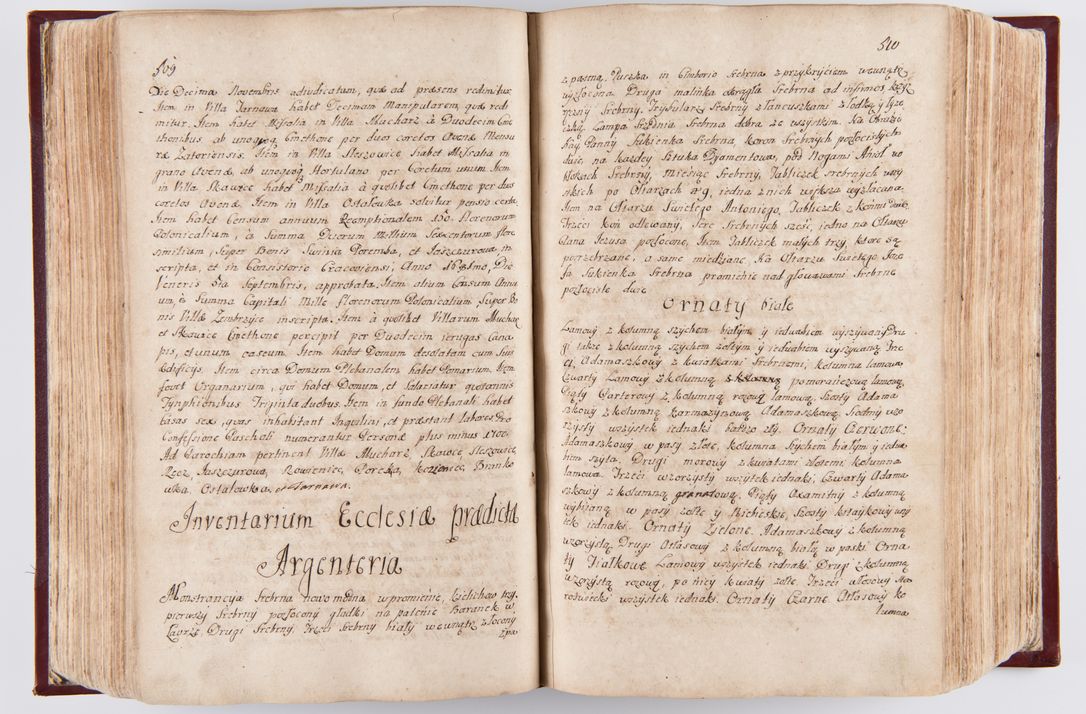 509
Die Decima Novembris adiudicatam, quæ ad præsens redimitur.
Item in Villa Jarnowa habet Decimam Manipularem, quæ redi
mitur. Item habet Missalia in Villa Mucharz à Duodecim Cme
thonibus ab unoqoq Cmethone per duo coretos Avenæ Mensu
ræ Zatoriensis. Item in Villa Sleszowice habet Missalia in
grano Avenæ, ab unoqoq Hortulano per Coretum unum. Item
in Villa Skawice habet Missalia à quolibet Cmethone per duo
coretos Avenæ. Item in Villa Ostalowka solvitur pensio certa.
Item habet Censum annuum Reemptionalem 130. Florenorum
Polonicalium, à Summa Duorum Millium Sexcentorum flore
similium Super Bonis Swinia Poremba, et Jaszczurowa in
scripta, et in Consistorio Cracoviensi, Anno Die
Veneris 3tia Septembris, approbata. Item alium Censum Annu
um, à Summa Capitali Mille florenorum Polonicalium Super Bo
nis Villæ Zembrzyce inscripta. Item à quolibet Villarum Muchar
et Skawice Cmethone percipit per Duodecim ierugas Cana
pis, et unum caseum. Item habet Domum desolatam cum suis
Edificijs. Item circa Domum Plebanalem habet Pomarium. Item
fovet Organarium, qui habet Domum, et Salariatur quotannis
Tynphionibus Triginta duobus. Item in fundo Plebanali habet
Casas sex, quas inhabitant Inquilini, et præstant labores. Pro
Confessione Paschali numerantur Personæ plus minus 1700.
Ad Parochiam pertinent Villæ Mucharz, Skawce, Sleszowice,
Rzez, Jaszczurowa, Rowieniec, Gorecka, Kozieniec, Bronko
wka, Ostalowka, et Tarnawa.
Inventarium Ecclesiæ prædictæ
Argenteria
Monstrancya Srebrna nowomodna w promienie, Kielichow trzy,
pierwszy Srebrny pozłocony gładki na patenie Baranek w
Laurze Drugi Srebrny, Trzeci Srebrny biały wewnątrz złocony
zpa
510
z pateną, Puszka in Cimborio Srebrna z przykryciem wewnątrz
wyzłocona. Druga malinka okrągła Srebrna ad infirmos, Krzy
ręczny Srebrny. Trybularz Srebrny z łancuszkami z łodką y łyże
czką. Lampa Srednia Srebrna dobra ze wszytkim. Na Obrazie
Nay Panny Sukienka Srebrna, koron Srebrnych pozłocistych
dwie, na kazdey Sztuka Dyamentowa, pod Nogami Anioł wo
błokach Srebrny, Miesiąc Srebrny, Tabliczek srebrnych wszy
stkich po Ołtarzach 49, iedna z nich większa wyzłacana.
Item na Ołtarzu Swiętego Antoniego, Tabliczek z Końmi dwie,
Trzeci Koń odlewany, Serc Srebrnych Sześć, iedno na Ołtarzu
Pana Jezusa pozłocone, Item Tabliczek małych trzy, ktore są
posrzebrzane, a same miedziane. Na Ołtarzu Swiętego Joze
fa Sukienka Srebrna promienie nad głowami Srebrne
pozłociste dwie
Ornaty białe
Lamowy z kolumną szychem białym y iedwabiem wyszywany Dru
gi także z kolumną szychem zołtym y iedwabiem wyszywaną Trze
ci, Adamaszkowy z kwiatkami Srebrnemi, kolumna lamowa
Czwarty Lamowy z kolumną pomorańczową lamową,
Piąty Garterowy z kolumną rozową lamową, Szosty Adama
szkowy z kolumną Karmazynową Adamaszkową, Siodmy wzo
rzysty wszystek iednaki bardzo zły. Ornaty Czerwone:
Adamaszkowy w pasy złote, kolumna Szychem białym y iedwa
biem szyta. Drugi morowy z kwiatami złotemi, kolumna
lamowa. Trzeci wzorzysty wszytek iednaki. Czwarty Adama
szkowy z kolumną granatową. Piąty Axamitny z kolumną
wybijaną w pasy zołte y Niebieskie, Szosty kitaykowy wszy
tek iednaki. Ornaty Zielone. Adamaszkowy z kolumną
wzorzystą. Drugi Atłasowy z kolumną białą w paski Orna
ty Fiałkowe Lamowy wszystek iednaki. Drugi z kolumną
wzorzystą rozową, po niey kwiaty zołte. Trzeci
wszystek iednaki. Ornaty Czarne. Atłasowy ko
lumna